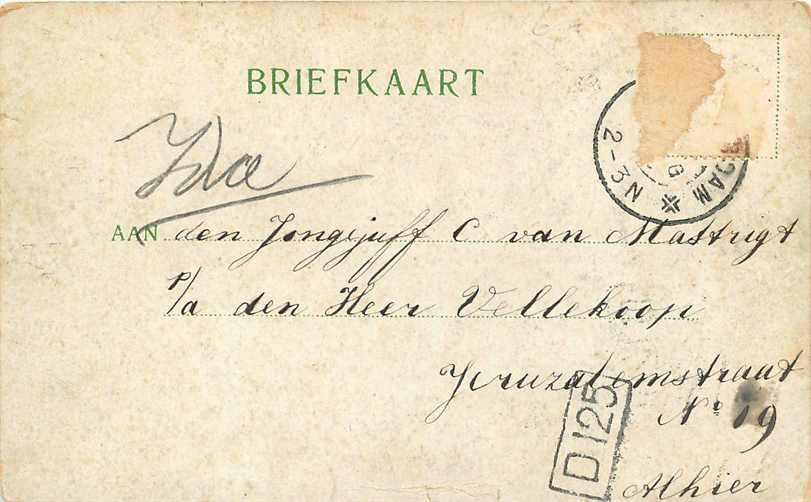 BRIEFKAART
2-3N
DAM
AAN den Jongejuff C van Mastrigt
p/a den Heer Vellekoop
Jeruzalemstraat
No 19
Alhier
D125